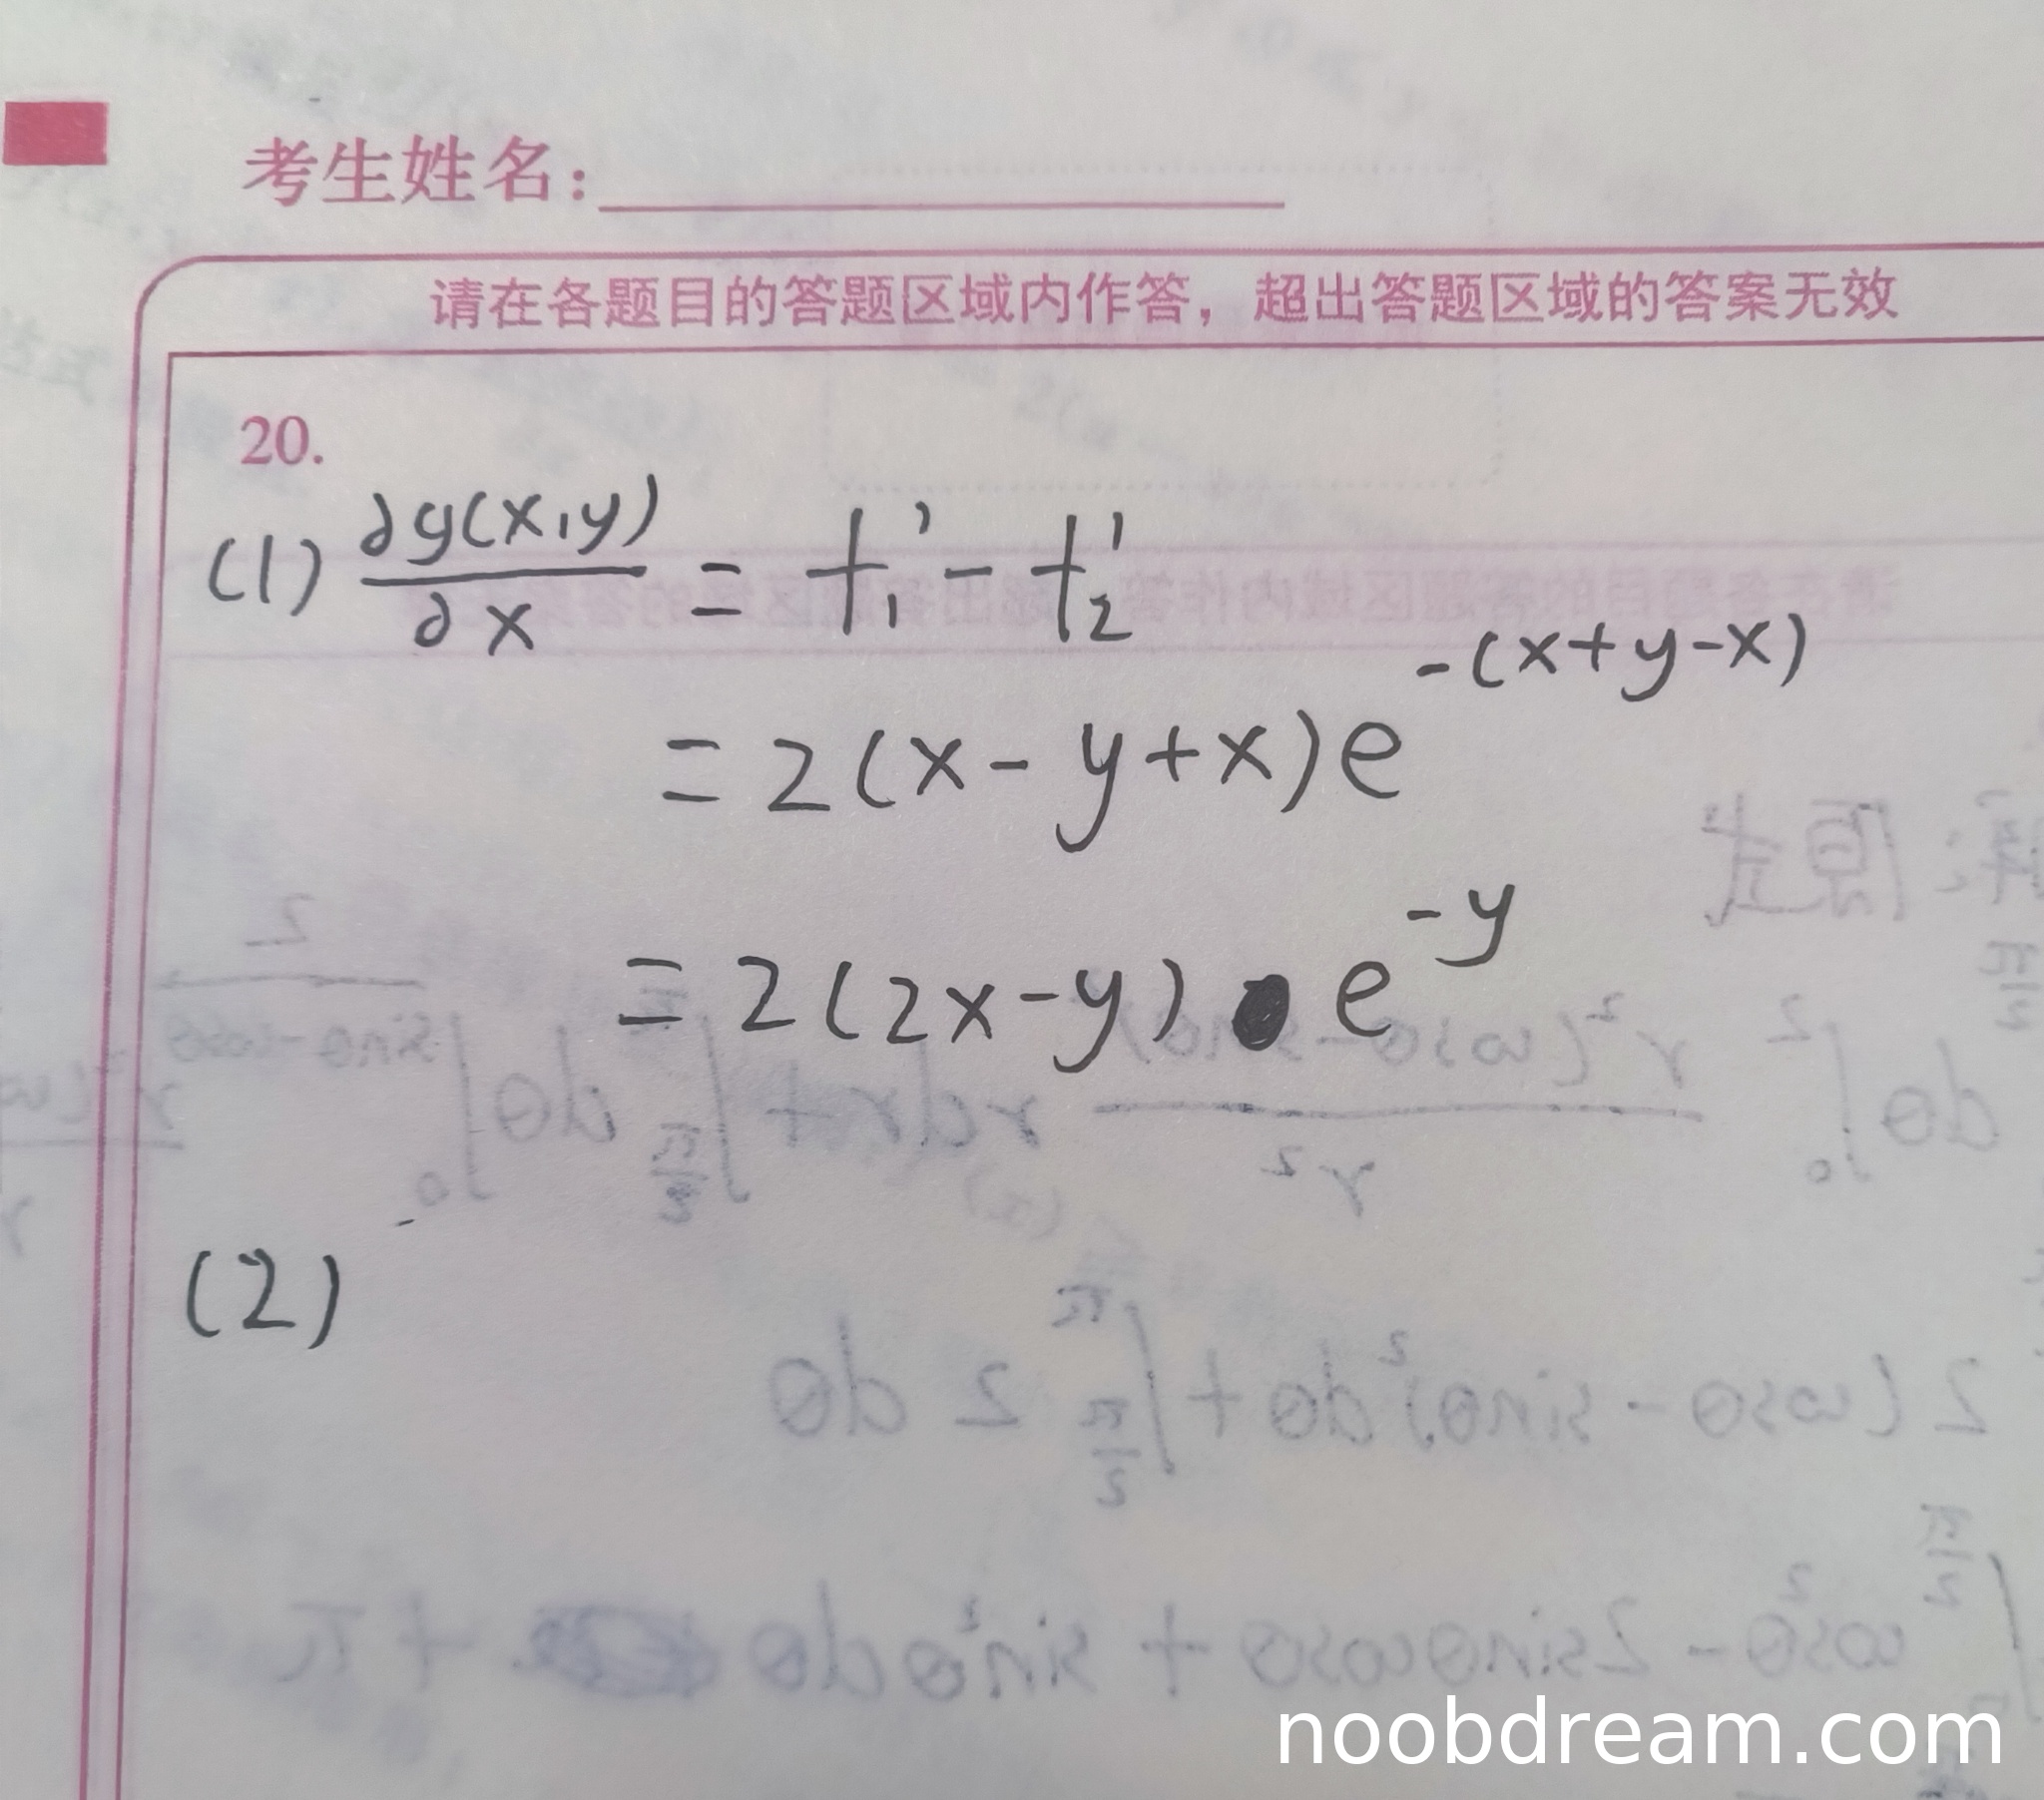 考生姓名:
请在各题目的答题区域内作答，超出答题区域的答案无效
20.
(1) ∂g(x,y)/∂x = f₁' - f₂'
= 2(x-y+x)e^{-(x+y-x)}
= 2(2x-y) e^{-y}
(2)
noobdream.com